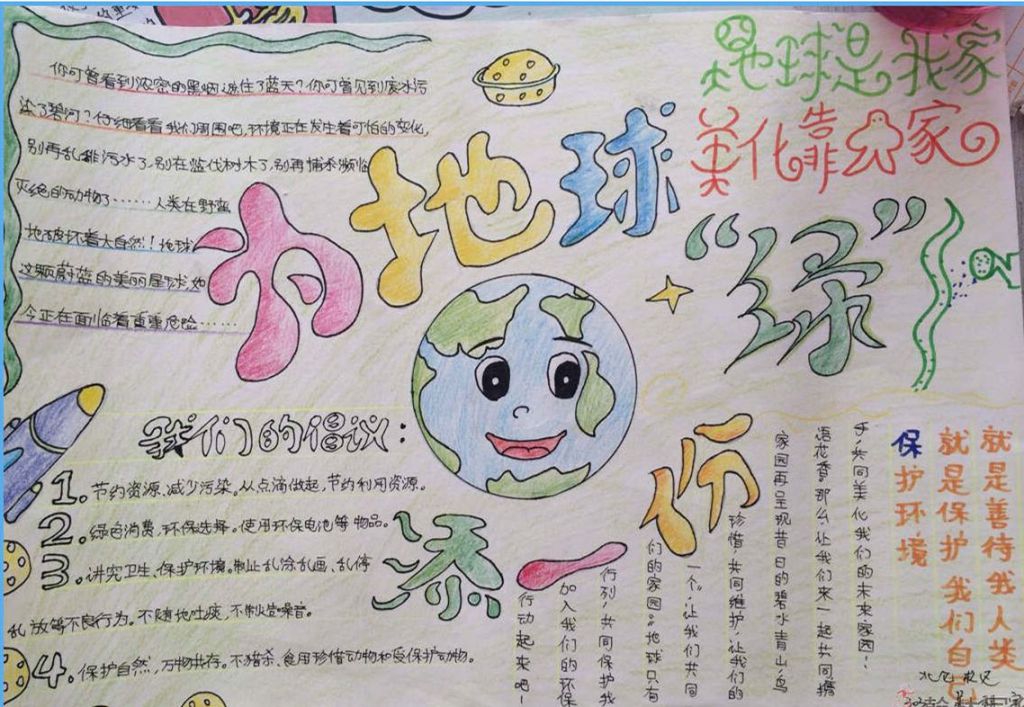 你可曾看到浓密的黑烟遮住了蓝天?你可曾见到废水污
染了碧河?仔细看看我们周围吧,环境正在发生着可怕的变化,
别再乱排污水了,别在滥伐树木了,别再捕杀濒临
灭绝的动物了……人类在野蛮
地破坏着大自然!地球
这颗蔚蓝的美丽星球如
今正在面临着重重危险……
地球是我家
美化靠大家
为地球
添一份
“绿”
我们的倡议:
1. 节约资源、减少污染。从点滴做起,节约利用资源。
2. 绿色消费,环保选择。使用环保电池等物品。
3. 讲究卫生、保护环境。制止乱涂乱画、乱停
乱放等不良行为。不随地吐痰,不制造噪音。
4. 保护自然,万物共存。不猎杀、食用珍惜动物和受保护动物。
保护环境
就是保护我们自己
就是善待我人类
乎,共同美化我们的未来家园!
语花香。那么让我们来一起共同携
家园再呈现昔日的碧水青山,鸟
珍惜,共同维护,让我们的
一个,让我们共同
们的家园。地球只有
行列,共同保护我
加入我们的环保
行动起来吧!